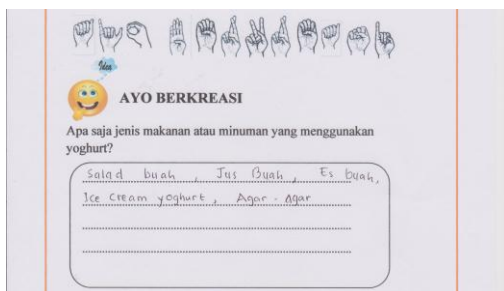 Idea
AYO BERKREASI
Apa saja jenis makanan atau minuman yang menggunakan
yoghurt?
Salad buah , Jus Buah , Es buah,
Ice Cream yoghurt , Agar - Agar